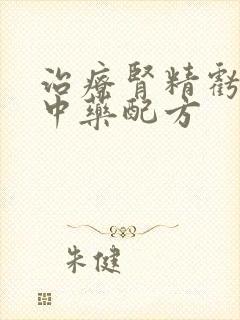 治疗肾精虧
中藥配方
朱健